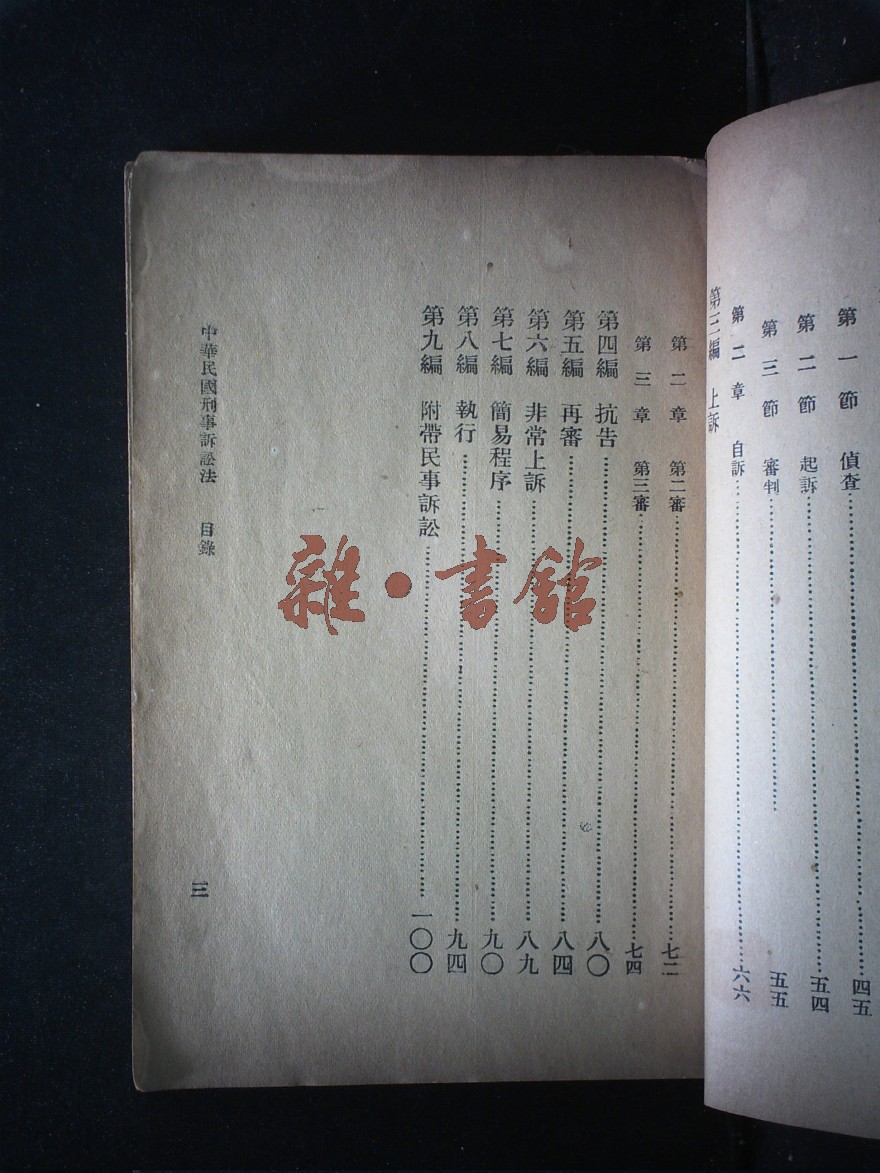 第一節　偵查……四五
第二節　起訴……五四
第三節　審判……五五
第二章　自訴……六六
第三編　上訴
第二章　第二審……七二
第三章　第三審……七四
第四編　抗告……八〇
第五編　再審……八四
第六編　非常上訴……八九
第七編　簡易程序……九〇
第八編　執行……九四
第九編　附帶民事訴訟……一〇〇
中華民國刑事訴訟法　目錄　三
雜·書館